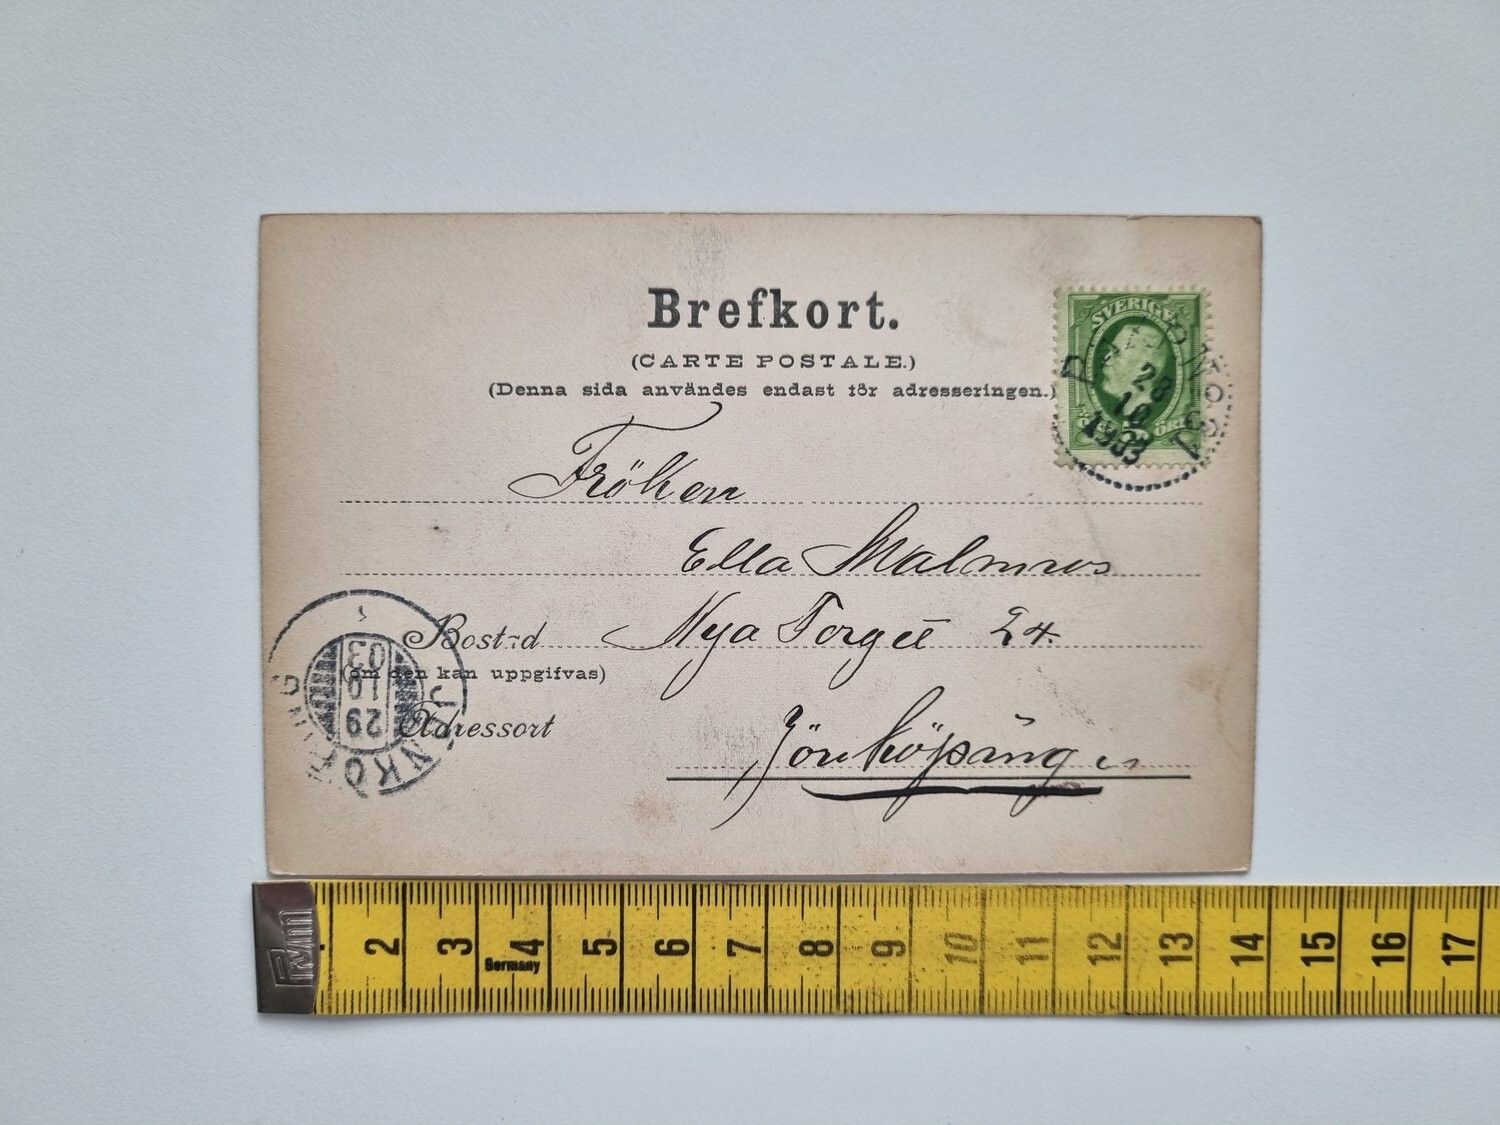 Brefkort.
(CARTE POSTALE.)
(Denna sida användes endast för adresseringen.)
SVERIGE
ÖRE
28
10
1903
Fröken
Ella Malmros
Bostad Nya Torget 24.
(om den kan uppgifvas)
Adressort
Jönköping
JÖNKÖPING
29
10
03
2 3 4 5 6 7 8 9 10 11 12 13 14 15 16 17
Germany